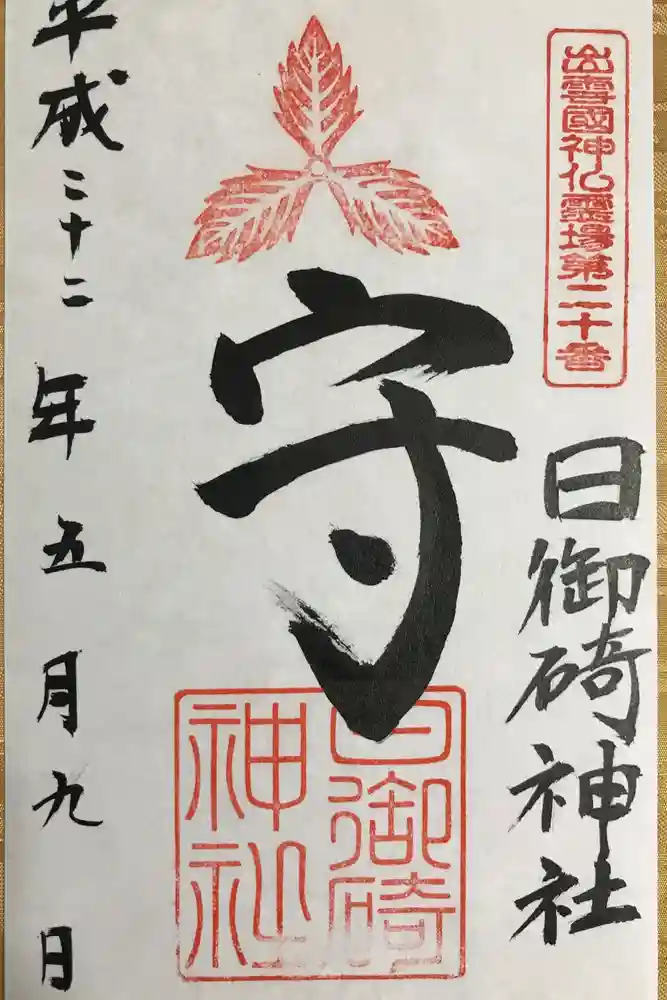 出雲國神仏霊場第二十番
日御碕神社
守
日御碕
神社
平成二十二年五月九日